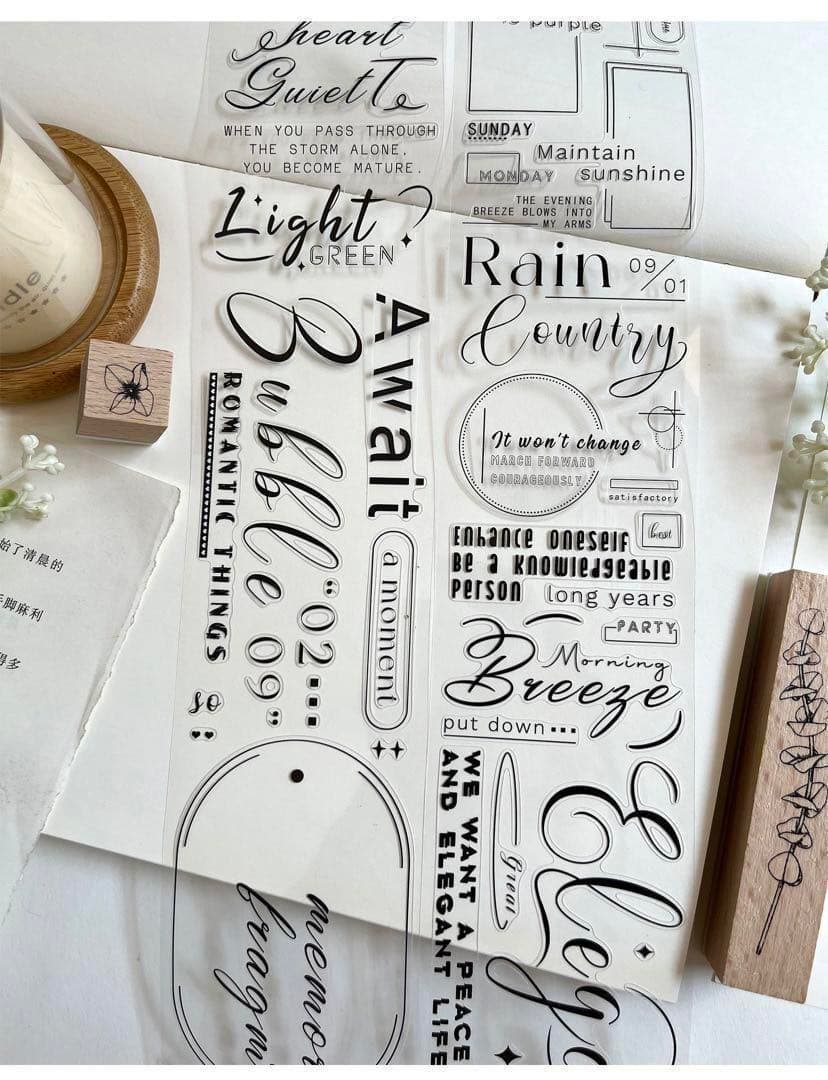 heart
Quiet
WHEN YOU PASS THROUGH
THE STORM ALONE,
YOU BECOME MATURE.
Light
GREEN
Bubble 09
"02...
”
Await
a moment
ROMANTIC THINGS
so
memor
fragm
purple
SUNDAY
MONDAY
Maintain
sunshine
THE EVENING
BREEZE BLOWS INTO
MY ARMS
Rain 09/01
Country
It won't change
MARCH FORWARD
COURAGEOUSLY
satisfactory
best
Enhance oneself
Be a knowledgeable
person
long years
PARTY
Morning
Breeze
put down...
WE WANT A PEACE
AND ELEGANT LIFE
Great
Elega
始了清晨的
手脚麻利
得多